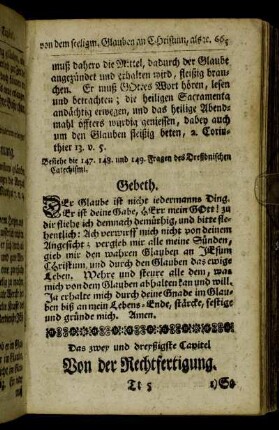 von dem seeligm. Glauben an Christum, als ꝛc. 665
muß dahero die Mittel, dadurch der Glaube
angezündet und erhalten wird, fleißig brau-
chen. Er muß GOttes Wort hören, lesen
und betrachten; die heiligen Sacramenta
andächtig erwegen, und das heilige Abend-
mahl öffters würdig geniessen, dabey auch
um den Glauben fleißig beten, 2. Corin-
thier 13. v. 5.
Besiehe die 147. 148. und 149. Fragen des Dreßdnischen
Catechismi.
Gebeth.
DEr Glaube ist nicht iedermanns Ding.
Er ist deine Gabe, HErr mein GOtt! zu
dir fliehe ich demnach demüthig, und bitte fle-
hentlich: Ach verwirff mich nicht von deinem
Angesicht; vergieb mir alle meine Sünden,
gieb mir den wahren Glauben an JEsum
Christum, und durch den Glauben das ewige
Leben. Wehre und steure alle dem, was
mich von dem Glauben abhalten kan und will.
Ja erhalte mich durch deine Gnade im Glau-
ben biß an mein Lebens-Ende, stärcke, festige
und gründe mich. Amen.
Das zwey und dreyßigste Capitel
Von der Rechtfertigung.
Tt 5